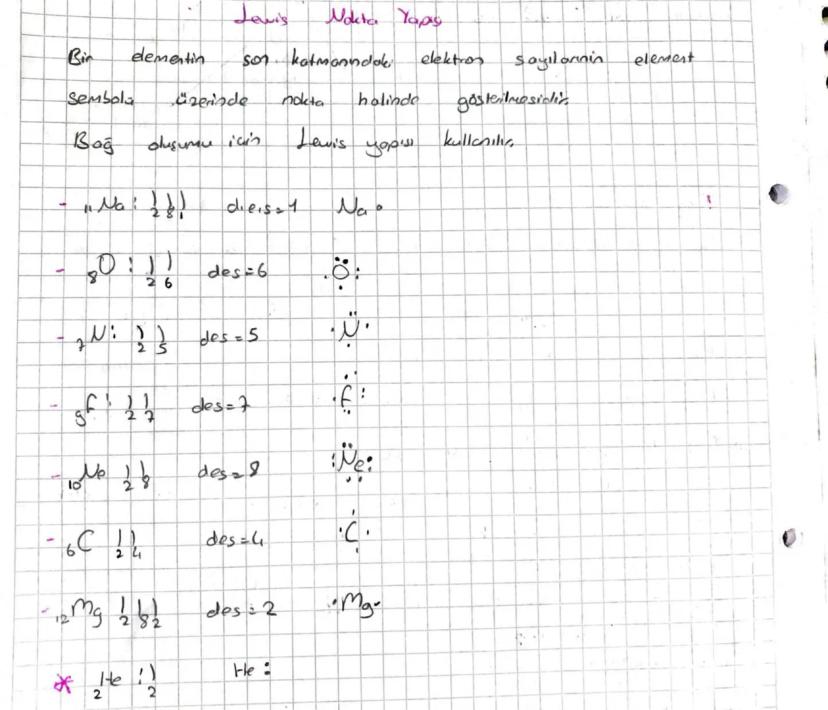 Lewis Nokta Yapısı
Bir elementin son katmanındaki elektron sayılarının element
sembolü üzerinde nokta halinde gösterilmesidir.
Bağ oluşumu için Lewis yapısı kullanılır.
- 11Na: ) ) ) 2 8 1 d.e.s=1 Na •
- 8O : ) ) 2 6 des=6 O
- 7N: ) ) 2 5 des=5 N
- 9F: ) ) 2 7 des=7 F
- 10Ne ) ) 2 8 des=8 Ne
- 6C ) ) 2 4 des=4 C
- 12Mg ) ) ) 2 8 2 des=2 •Mg•
* 2He : ) 2 He :